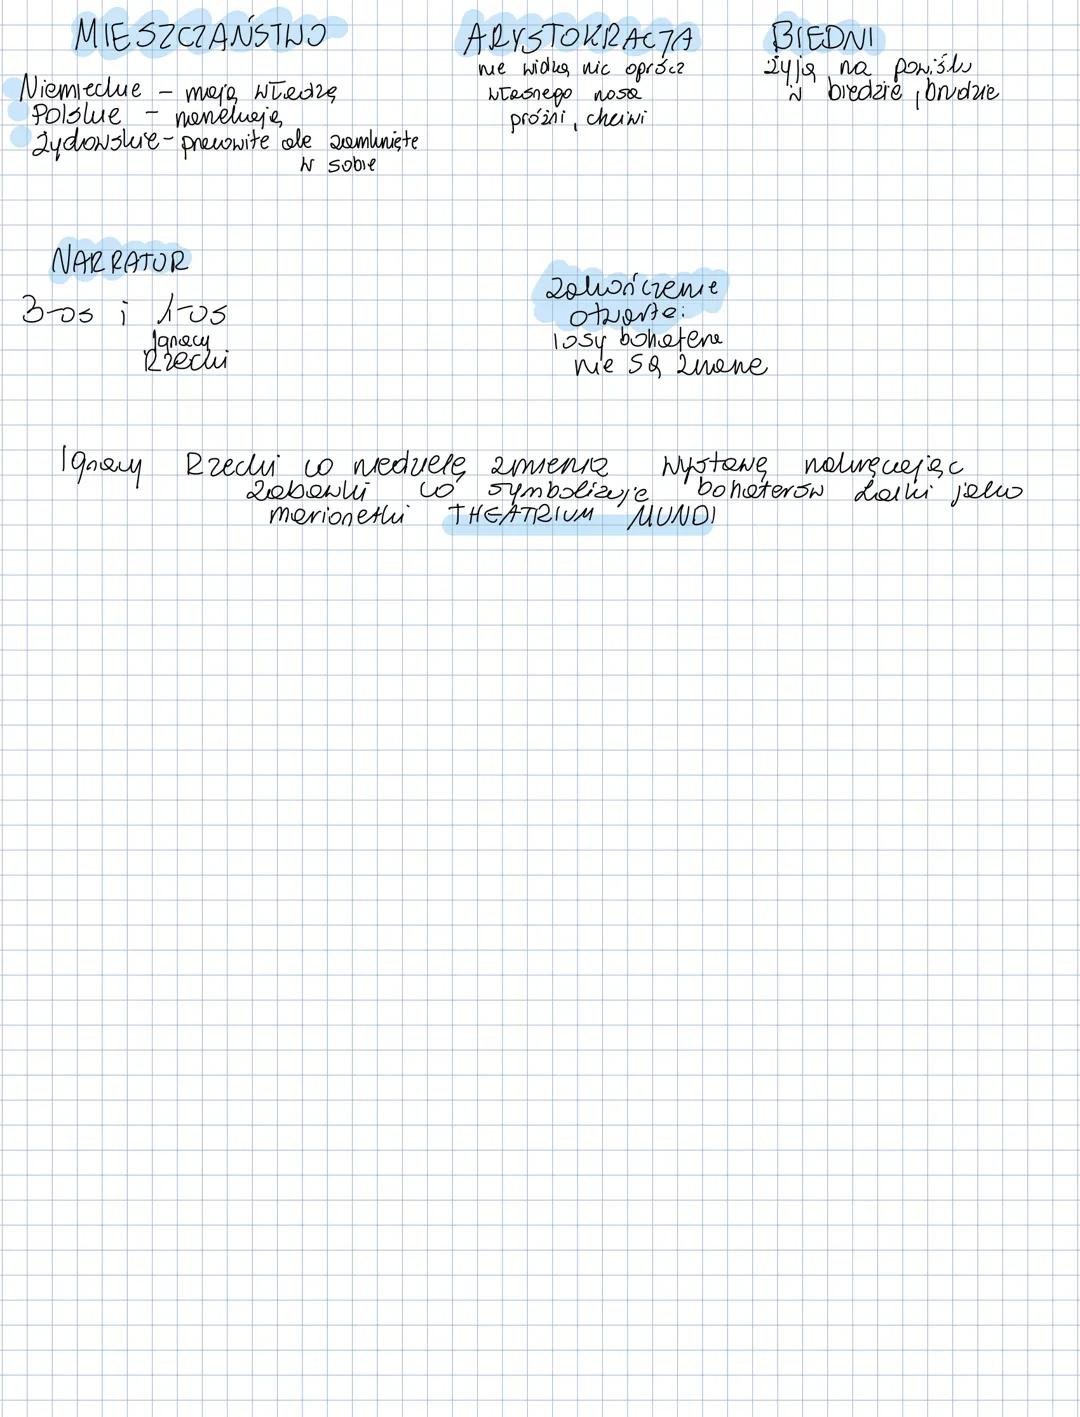 MIESZCZAŃSTWO
Niemieckie - mają władzę
Polskie - narzekają
żydowskie - pracowite ale zamknięte
w sobie
ARYSTOKRACJA
nie widzą nic oprócz
własnego nosa
próżni, chciwi
BIEDNI
żyją na powiślu
w biedzie, brudzie
NARRATOR
3-os i 1-os
Ignacy
Rzecki
Zakończenie
otwarte:
losy bohatera
nie są znane
Ignacy Rzecki co niedzielę zmienia wystawę nakręcając
zabawki co symbolizuje bohaterów Lalki jako
marionetki THEATRIUM MUNDI